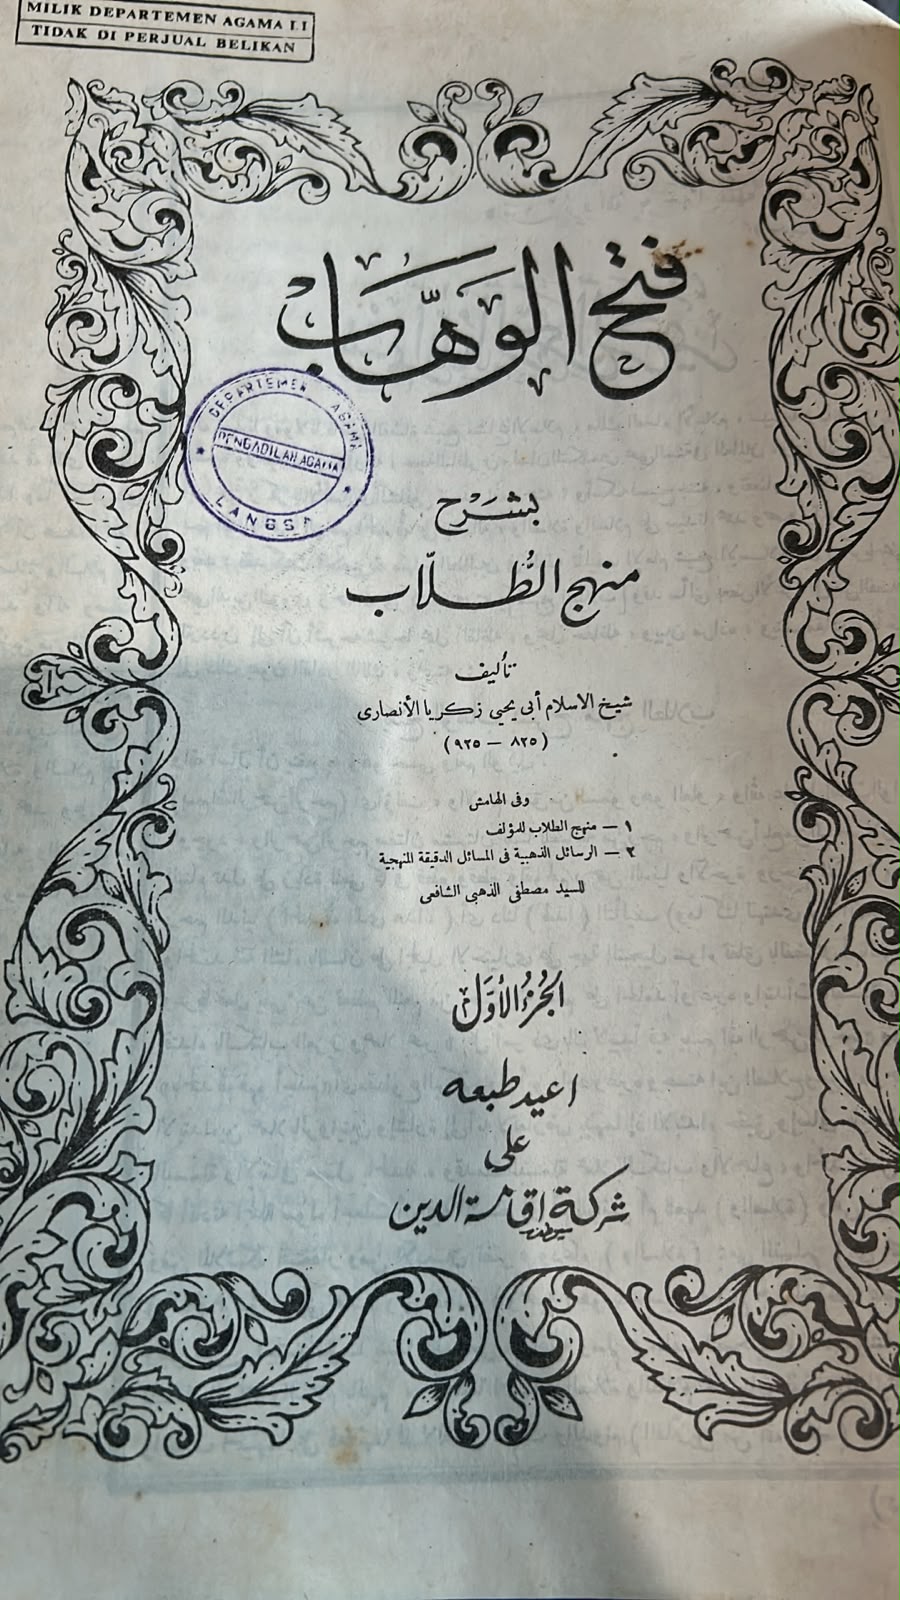 MILIK DEPARTEMEN AGAMA R I
TIDAK DI PERJUAL BELIKAN
فتح الوهّاب
DEPARTEMEN AGAMA
PENGADILAN AGAMA
LANGSA
بشرح
منهج الطُّلّاب
تأليف
شيخ الاسلام أبى يحيى زكريا الأنصارى
(٨٢٥ — ٩٢٥)
وفى الهامش
١ — منهج الطلاب للمؤلف
٢ — الرسائل الذهبية فى المسائل الدقيقة المنهجية
للسيد مصطفى الذهبى الشافعى
الجُزءُ الأوَّل
اعيد طبعه
على
شركة اقامة الدين